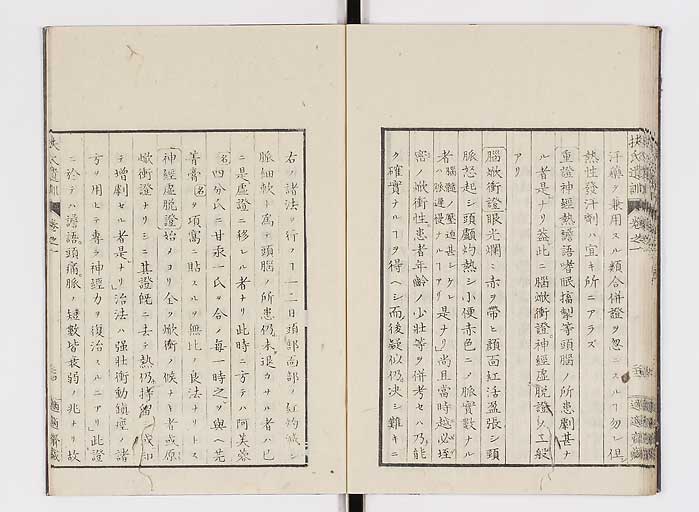 汗藥ヲ兼用スル類合併證ヲ忽ニスル勿レ但シ
熱性發汗劑ハ宜キ所ニアラズ
重證神經熱譫語嗜眠搐掣等頭腦ノ所患劇甚ナ
ル者是ナリ蓋此ニ腦焮衝證神經虛脫證ノ二般
アリ
腦焮衝證眼光爛々赤ヲ帶ヒ顏面紅活盈張シ頭
脈怒起シ頭顱灼熱シ小便赤色ニノ脈實數ナル
者腦髓ノ壓迫甚シケレハ脈遲慢ナルアリ是ナリ尚且當時越必埕
密ノ焮衝性患者年齡ノ少壯等ヲ併考セハ乃能
ク確實ナルヲ得ヘシ而後疑似仍決シ難キニ
右ノ諸法ヲ行フ一二日頭部向部ノ紅灼減シ
脈細軟ト爲テ頭腦ノ所患仍未退カサル者ハ已
ニ是虛證ニ移レル者ナリ此時ニ方テハ阿芙蓉
四分氏ニ甘汞一氏ヲ合ノ每一時之ヲ與ヘ芫
菁膏ヲ項窩ニ貼スルヲ無比ノ良法ナリトス
神經虛脫證始ノヨリ全ク焮衝ノ候ナキ者或原
焮衝證ナリシニ其證既ニ去テ熱仍持
テ增劇セル者是ナリ治法ハ强壯衝動鎭痙ノ諸
方ヲ用ヒテ專ラ神經力ヲ復治スルニアリ此證
ニ於テハ譫語頭痛脈ノ短數皆衰弱ノ兆ナリ故
扶氏遺訓
卷之一
適適齋藏